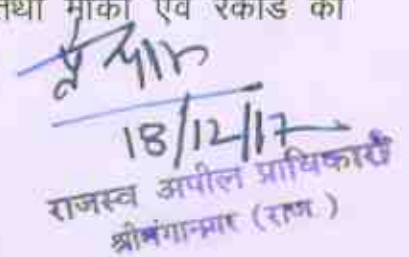 तथा मौका एवं रेकार्ड का
18/12/17
राजस्व अपील प्राधिकारी
श्रीगंगानगर (राज.)